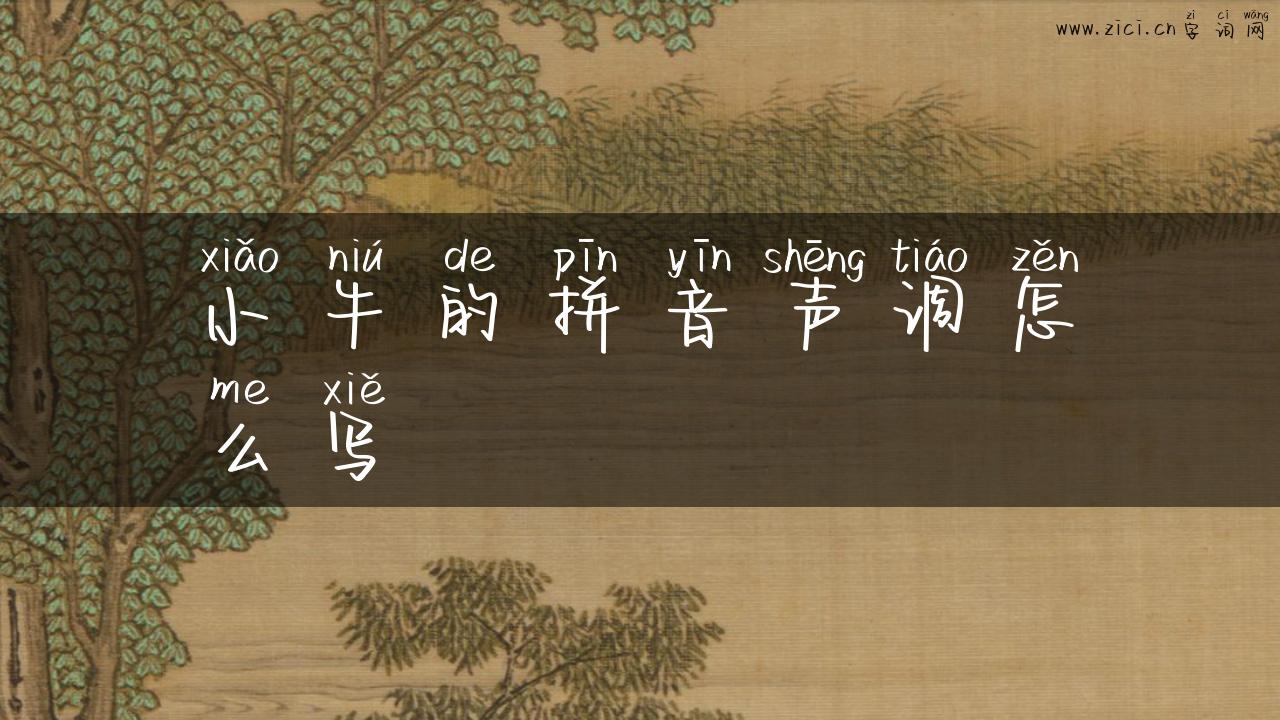 zì cí wǎng
www.zici.cn 字词网
xiǎo niú de pīn yīn shēng tiáo zěn
小牛的拼音声调怎
me xiě
么写